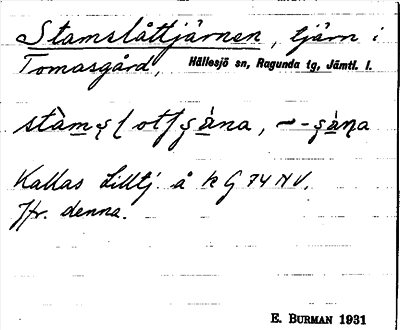 Stamslåttjärnen, tjärn i
Tomasgård, Hällesjö sn, Ragunda tg, Jämtl. l.
Kallas Lilltj. å k G 74 NV.
Jfr. denna.
E. BURMAN 1931